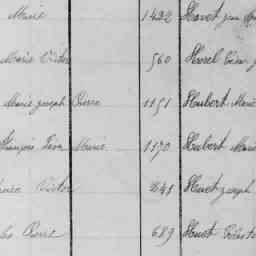 Marie 1422 Havet Jean
Marie Victor 560 Horel
Marie Joseph Pierre 1151 Hubert Marie
François Léon Marie 1170 Hubert Marie
Victor 841 Huet Joseph
Pierre 689 Huet